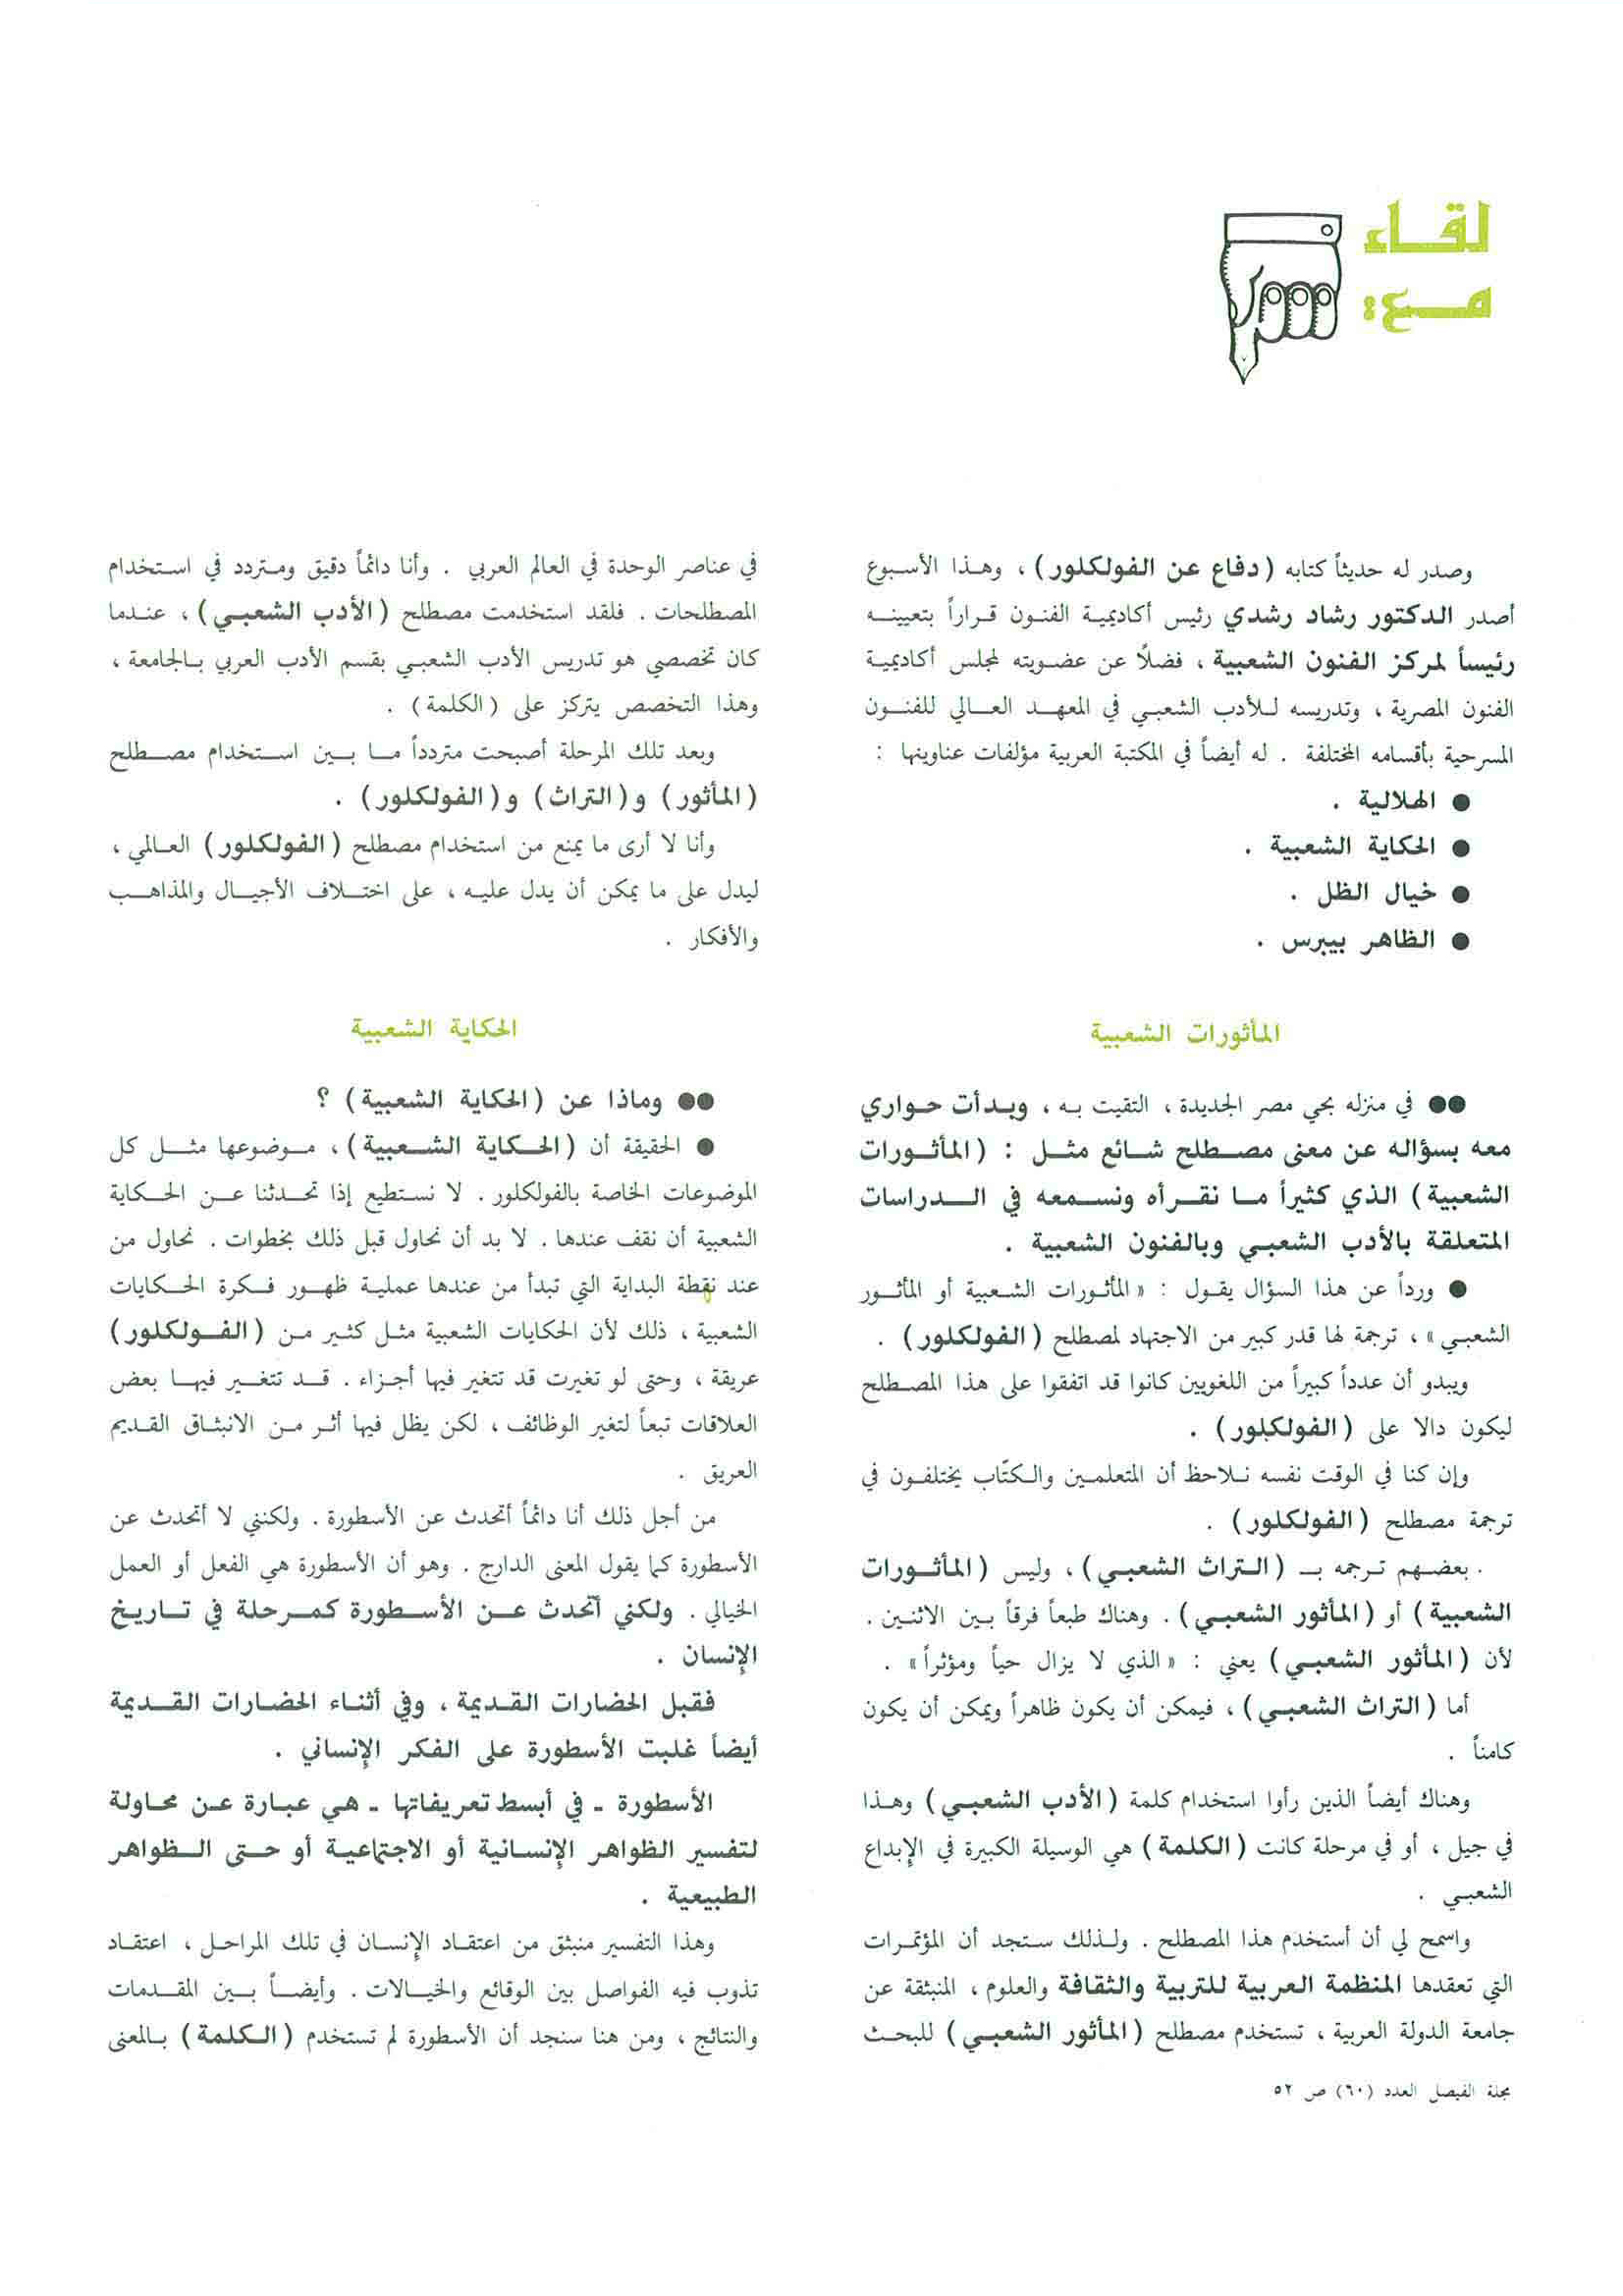 لقاء
مع:
وصدر له حديثاً كتابه (دفاع عن الفولكلور) ، وهذا الأسبوع
أصدر الدكتور رشاد رشدي رئيس أكاديمية الفنون قراراً بتعيينه
رئيساً لمركز الفنون الشعبية ، فضلاً عن عضويته لمجلس أكاديمية
الفنون المصرية ، وتدريسه للأدب الشعبي في المعهد العالي للفنون
المسرحية بأقسامه المختلفة . له أيضاً في المكتبة العربية مؤلفات عناوينها :
● الهلالية .
● الحكاية الشعبية .
● خيال الظل .
● الظاهر بيبرس .
المأثورات الشعبية
●● في منزله بحي مصر الجديدة ، التقيت به ، وبدأت حواري
معه بسؤاله عن معنى مصطلح شائع مثل : (المأثورات
الشعبية) الذي كثيراً ما نقرأه ونسمعه في الدراسات
المتعلقة بالأدب الشعبي وبالفنون الشعبية .
● ورداً عن هذا السؤال يقول : «المأثورات الشعبية أو المأثور
الشعبي» ، ترجمة لها قدر كبير من الاجتهاد لمصطلح (الفولكلور) .
ويبدو أن عدداً كبيراً من اللغويين كانوا قد اتفقوا على هذا المصطلح
ليكون دالا على (الفولكلور) .
وإن كنا في الوقت نفسه نلاحظ أن المتعلمين والكتّاب يختلفون في
ترجمة مصطلح (الفولكلور) .
. بعضهم ترجمه بـ (التراث الشعبي) ، وليس (المأثورات
الشعبية) أو (المأثور الشعبي) . وهناك طبعاً فرقاً بين الاثنين .
لأن (المأثور الشعبي) يعني : «الذي لا يزال حياً ومؤثراً» .
أما (التراث الشعبي) ، فيمكن أن يكون ظاهراً ويمكن أن يكون
كامناً .
وهناك أيضاً الذين رأوا استخدام كلمة (الأدب الشعبي) وهذا
في جيل ، أو في مرحلة كانت (الكلمة) هي الوسيلة الكبيرة في الإبداع
الشعبي .
واسمح لي أن أستخدم هذا المصطلح . ولذلك ستجد أن المؤتمرات
التي تعقدها المنظمة العربية للتربية والثقافة والعلوم ، المنبثقة عن
جامعة الدولة العربية ، تستخدم مصطلح (المأثور الشعبي) للبحث
في عناصر الوحدة في العالم العربي . وأنا دائماً دقيق ومتردد في استخدام
المصطلحات . فلقد استخدمت مصطلح (الأدب الشعبي) ، عندما
كان تخصصي هو تدريس الأدب الشعبي بقسم الأدب العربي بالجامعة ،
وهذا التخصص يتركز على (الكلمة) .
وبعد تلك المرحلة أصبحت متردداً ما بين استخدام مصطلح
(المأثور) و(التراث) و(الفولكلور) .
وأنا لا أرى ما يمنع من استخدام مصطلح (الفولكلور) العالمي ،
ليدل على ما يمكن أن يدل عليه ، على اختلاف الأجيال والمذاهب
والأفكار .
الحكاية الشعبية
●● وماذا عن (الحكاية الشعبية) ؟
● الحقيقة أن (الحكاية الشعبية) ، موضوعها مثل كل
الموضوعات الخاصة بالفولكلور . لا نستطيع إذا تحدثنا عن الحكاية
الشعبية أن نقف عندها . لا بد أن نحاول قبل ذلك بخطوات . نحاول من
عند نقطة البداية التي تبدأ من عندها عملية ظهور فكرة الحكايات
الشعبية ، ذلك لأن الحكايات الشعبية مثل كثير من (الفولكلور)
عريقة ، وحتى لو تغيرت قد تتغير فيها أجزاء . قد تتغير فيها بعض
العلاقات تبعاً لتغير الوظائف ، لكن يظل فيها أثر من الانبثاق القديم
العريق .
من أجل ذلك أنا دائماً أتحدث عن الأسطورة . ولكنني لا أتحدث عن
الأسطورة كما يقول المعنى الدارج . وهو أن الأسطورة هي الفعل أو العمل
الخيالي . ولكني أتحدث عن الأسطورة كمرحلة في تاريخ
الإنسان .
فقبل الحضارات القديمة ، وفي أثناء الحضارات القديمة
أيضاً غلبت الأسطورة على الفكر الإنساني .
الأسطورة - في أبسط تعريفاتها - هي عبارة عن محاولة
لتفسير الظواهر الإنسانية أو الاجتماعية أو حتى الظواهر
الطبيعية .
وهذا التفسير منبثق من اعتقاد الإنسان في تلك المراحل ، اعتقاد
تذوب فيه الفواصل بين الوقائع والخيالات . وأيضاً بين المقدمات
والنتائج ، ومن هنا سنجد أن الأسطورة لم تستخدم (الكلمة) بالمعنى
مجلة الفيصل العدد (٦٠) ص ٥٢